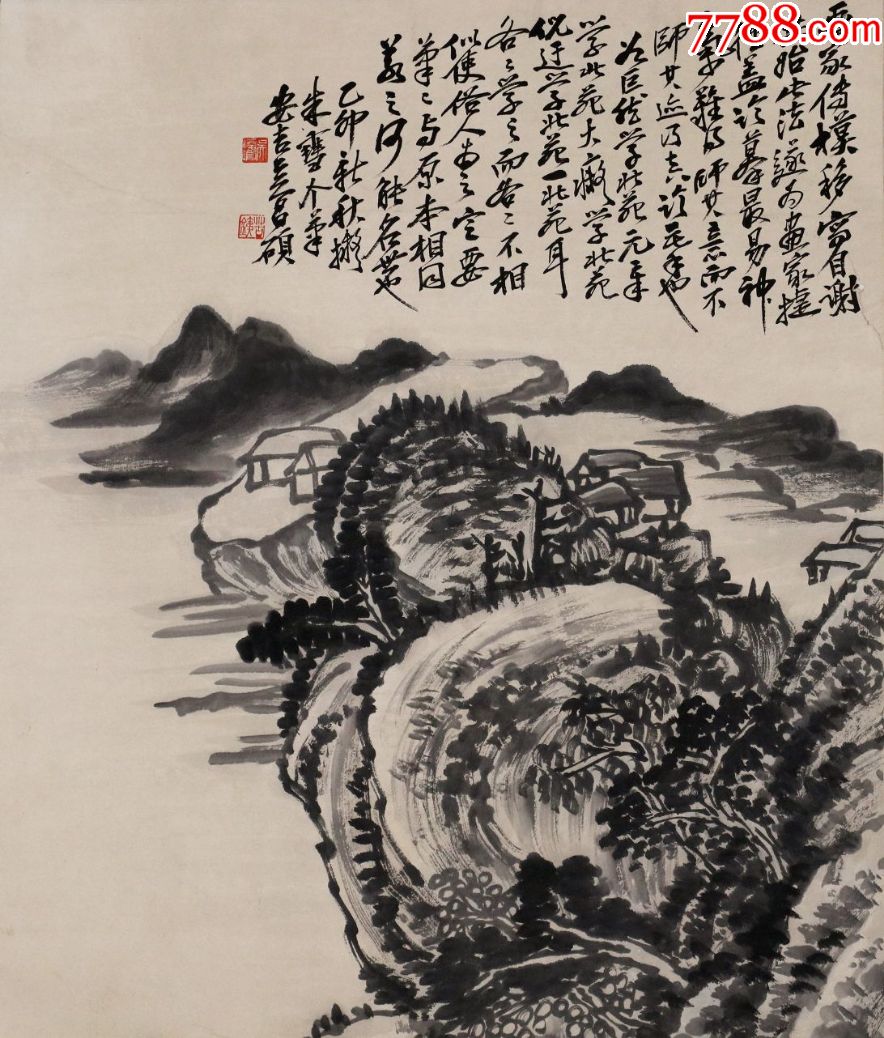 7788.com
画家传模移写自谢
始此法遂为画家捷
盖临摹最易神
气难得师其意而不
师其迹乃真临摹也
如巨然学北苑元章
学北苑大癡学北苑
倪迂学北苑一北苑耳
各各学之而各各不相
似使俗人为之定要
笔笔与原本相同
若之何能名世也
乙卯新秋拟
朱雪个笔
安吉吴昌硕